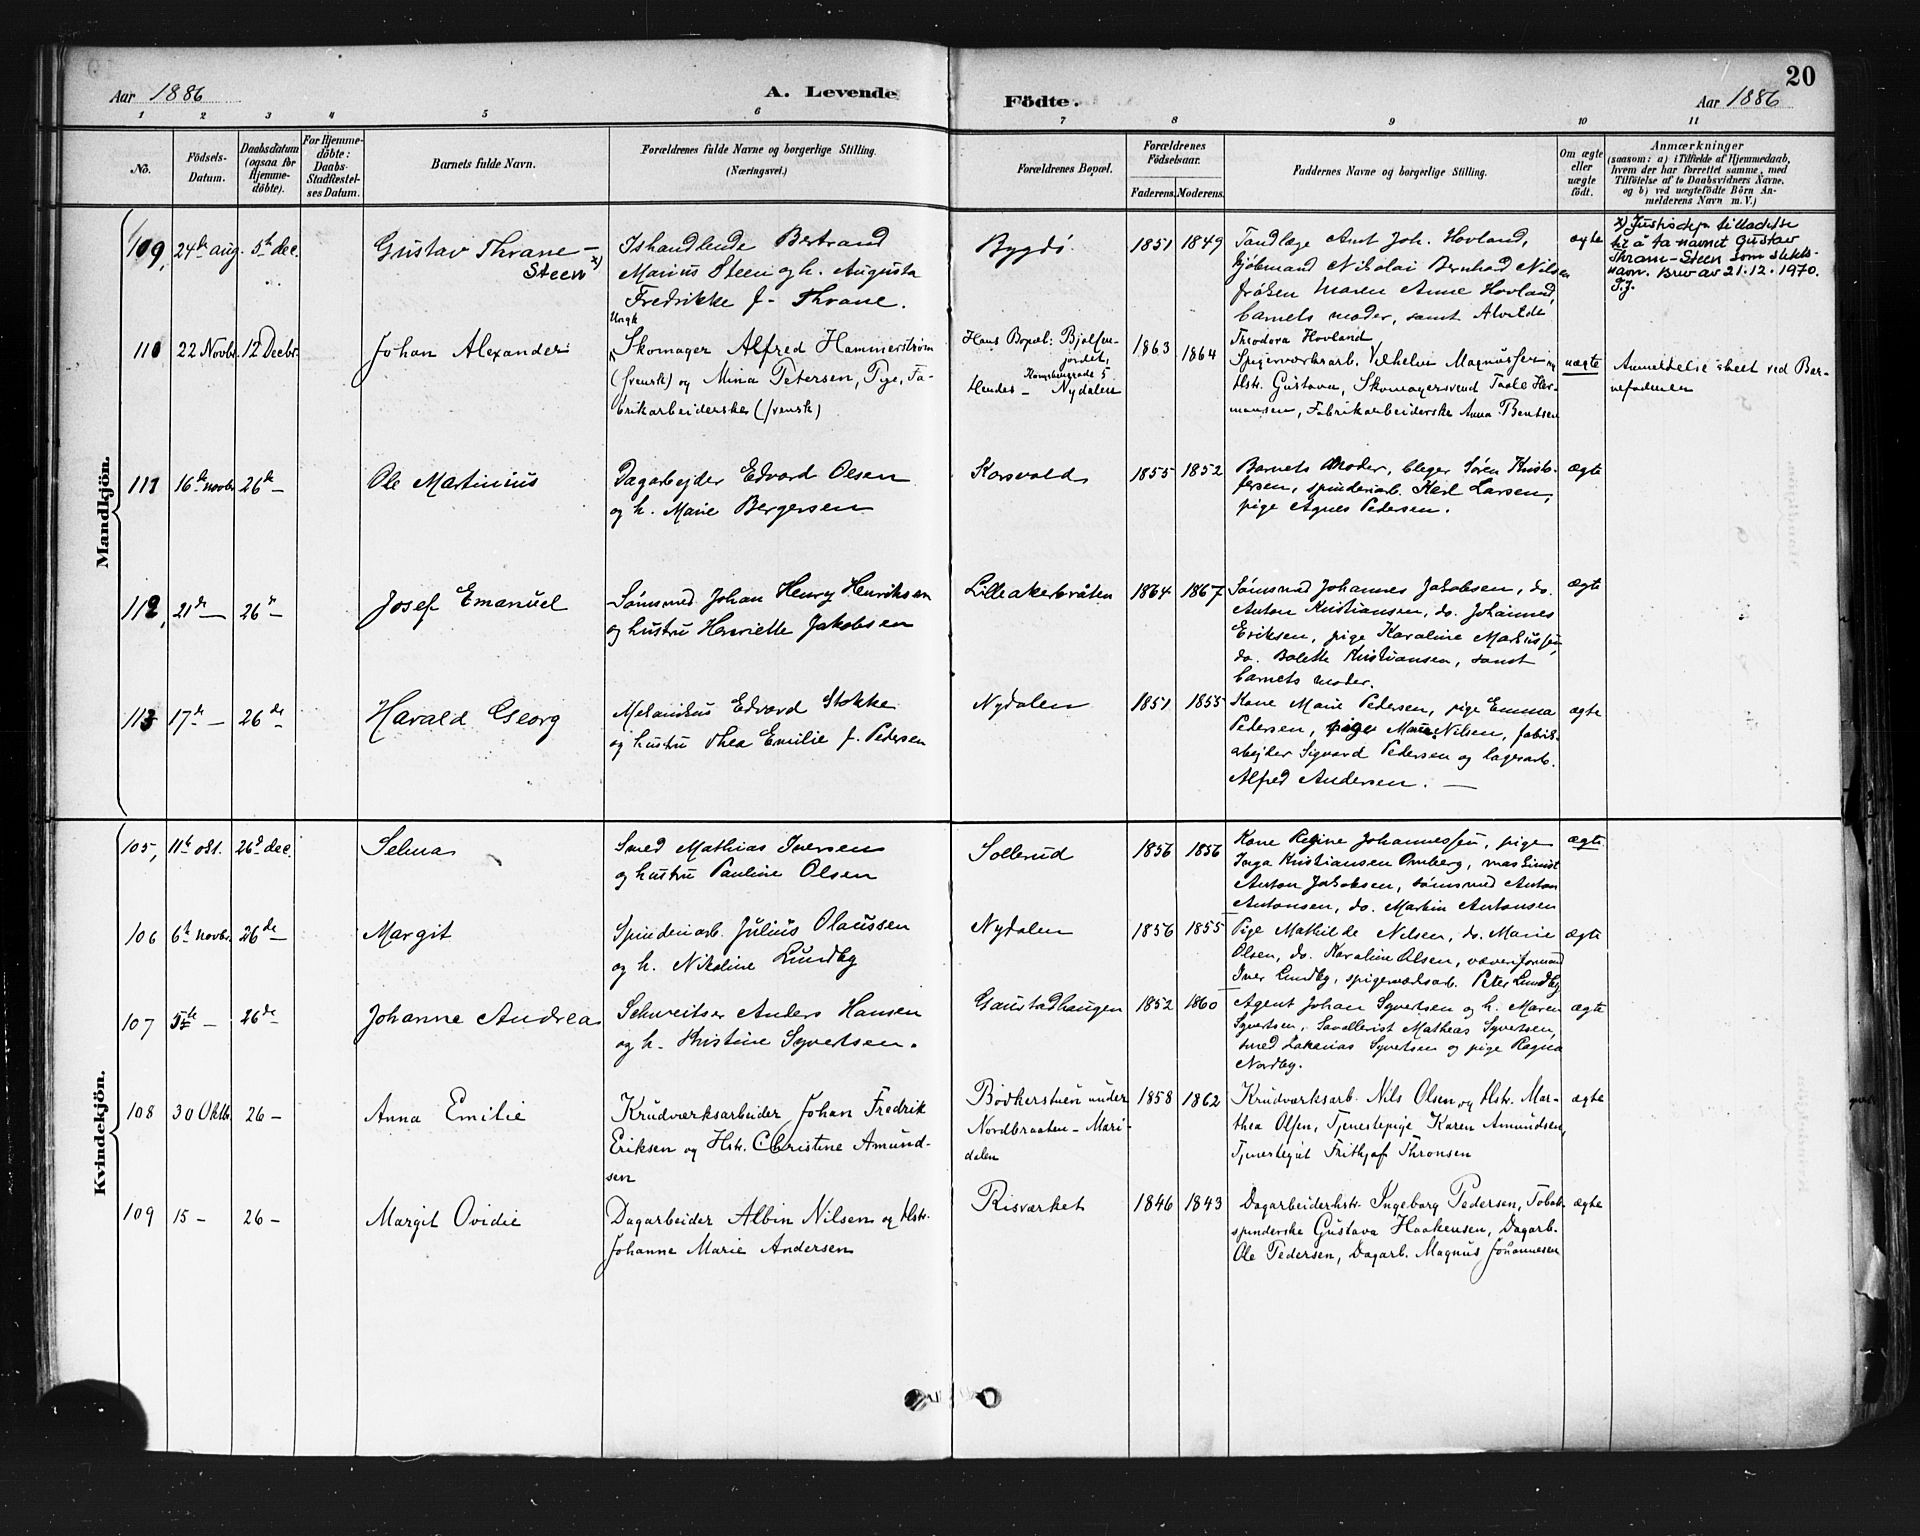 20
Aar 1886
A. Levende
Födte.
Aar 1886
1 2 3 4 5 6 7 8 9 10 11
No.
Födsels-
Datum.
Daabsdatum
(ogsaa for
Hjemme-
döbte).
For Hjemme-
döbte:
Daabs-
Stadfæstel-
ses Datum.
Barnets fulde Navn.
Forældrenes fulde Navne og borgerlige Stilling.
(Næringsvei.)
Forældrenes Bopæl.
Forældrenes
Födselsaar.
Faderens. Moderens.
Faddernes Navne og borgerlige Stilling.
Om ægte
eller
uægte
födt.
Anmærkninger
(saasom: a) i Tilfælde af Hjemmedaab,
hvem der har forrettet samme, med
Tilföielse af to Daabsvidners Navne,
og b) ved uægtefödte Börn An-
melderens Navn m. V.)
Mandkjön.
109, 24de aug. 5te dec.
Gustav Thrane-
Steen x)
Ishandlende Bertrand
Marius Steen og h. Augusta
Fredrikke f. Thrane.
Bygdö.
1851 1849
Tandlæge Amt Joh. Hovland,
kjöbmand Nikolai Bernhard Nilsen
fröken Maren Anne Hovland,
barnets moder, samt Alvilde
Theodora Hovland
ægte
x) Justisdep. tilladelse
til å ta navnet Gustav
Thrane-Steen som slekts-
navn. Brev av 21.12.1970.
110 22 Novbr. 12 Decbr.
Johan Alexander
Ungk
Skomager Alfred Hammerström
(svensk) og Mina Petersen, Pige, Fa-
brikarbeiderske (svensk)
Hans Bopæl: Bjølsen-
jordet,
Hendes - Nydalen
1863 1864
Spigerværksarb. Vilhelm Magnussen og
Hstr. Gustava, Skomagersvend Taale Her-
mansen, Fabrikarbeiderske Anna Bentsen
uægte
Anmeldelse skeet ved Bar-
nefaderen
111 16de novbr. 26de -
Ole Martinius
Dagarbejder Edvard Olsen
og h. Marie Bergersen
Korsvold
1855 1852
Barnets Moder, bleger Sören Krist-
fersen, spinderiarb. Karl Larsen,
pige Agnes Pedersen.
ægte
112, 21de - 26de -
Josef Emanuel
Sömsmed Johan Henry Henriksen
og hustru Henriette Jakobsen
Lilleakerbråten
1864 1867
Sömsmed Johannes Jakobsen, do.
Anton Kristiansen, do. Johannes
Eriksen, pige Karoline Markussen,
do. Bolette Kristiansen, samt
barnets moder.
ægte
113 17de - 26de
Harald Georg
Mekanikus Edvard Stokke
og hustru Thea Emilie f. Pedersen
Nydalen
1851 1855
Kone Marie Pedersen, pige Emma
Pedersen, pige Marie Nilsen, fabrik-
arbejder Sigvard Pedersen og lagerarb.
Alfred Andersen. -
ægte
Kvindekjön.
105, 11te okt. 26de dec.
Selma
Smed Mathias Iversen
og hustru Pauline Olsen
Sollerud
1856 1856
Kone Regine Johannessen, pige
Inga Kristiansen Ornberg, maskinist
Anton Jakobsen, sömsmed Anton
Antonsen, do. Martin Antonsen
ægte
106 6te novbr. 26de -
Margit
Spinderiarb. Julius Olaussen
og h. Nikoline Lundby
Nydalen
1856 1855
Pige Mathilde Nilsen, do. Marie
Olsen, do. Karoline Olsen, væveriformand
Iver Lundby, spigerværksarb. Peter Lundby
ægte
107 5te - 26de
Johanne Andrea
Schweitser Anders Hansen
og h. Kristine Syvertsen.
Gaustadhaugen
1852 1860
Agent Johan Syvertsen og h. Maren
Syvertsen, Mathias Syvertsen,
smed Zakarias Syvertsen og pige Ragna
Nordby.
ægte
108 30 Oktb. 26 -
Anna Emilie
Krudværksarbeider Johan Fredrik
Eriksen og Hstr. Christine Amund-
sen
Bödkerstuen under
Nordbraaten - Mari-
dalen
1858 1862
Krudværksarb. Nils Olsen og Hstr. Mar-
thea Olsen, Tjenestepige Karen Amundsen,
Tjenestegut Frithjof Thronsen
ægte
109 15 - 26 -
Margit Ovidie
Dagarbeider Albin Nilsen og Hstr.
Johanne Marie Andersen
Risværket
1846 1843
Dagarbeiderhstr. Ingeborg Pedersen, Tobak-
spinderske Gustava Haakensen, Dagarb.
Ole Pedersen, Dagarb. Magnus Johannesen
ægte